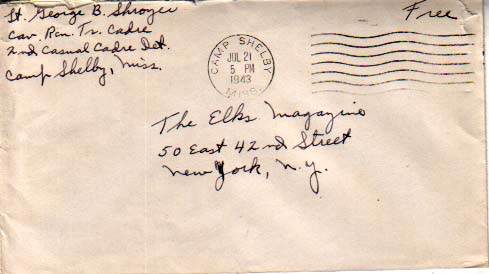 Lt. George B. Shroyer
Cav. Ren. Tr. Cadre
2nd Casual Cadre Det.
Camp Shelby, Miss.
Free
CAMP SHELBY
JUL 21
5 PM
1943
MISS.
The Elks Magazine
50 East 42nd Street
New York, N.Y.